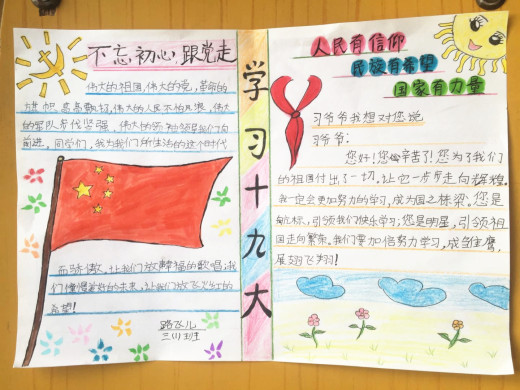 不忘初心,跟党走
伟大的祖国,伟大的党,革命的
旗帜高高飘扬,伟大的人民不怕艰艰,伟大
的军队多代坚强,伟大的领袖领导我们向
前进,同学们,我为我们所生活的这个时代
而骄傲,让我们放幸福的歌唱,我
们憧憬美好的未来,让我们放飞火红的
希望!
路飞儿
三(1)班
学习十九大
人民有信仰
民族有希望
国家有力量
习爷爷我想对您说
习爷爷:
您好!您辛苦了!您为了我们
的祖国付出了一切,让它一步步走向辉煌.
我一定会更加努力的学习,成为国之栋梁.您是
航标,引领我们快乐学习;您是明星,引领祖
国走向繁荣.我们要加倍努力学习,成为雏鹰,
展翅飞翔!